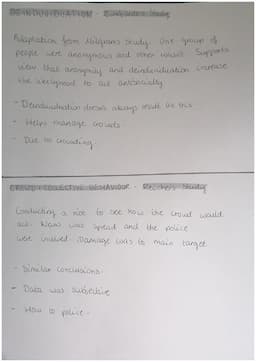 DEINDIVIDUATION - Zimbardo's Study
Adaptation from Milgrams study. One group of
people were anonymous and other wasn't. Supports
view that anonymity and deindividuation increase
the to act antisocially.
- Deindividuation doesn't always result in this.
- Helps manage crowds
- Due to crowding.
CROWD + COLLECTIVE BEHAVIOUR - Reichers Study
Conducting a riot to see how the crowd would
act. News was spread and the police
were involved. Damage was to main target.
- Similar conclusions.
- Data was subjective
- How to police.